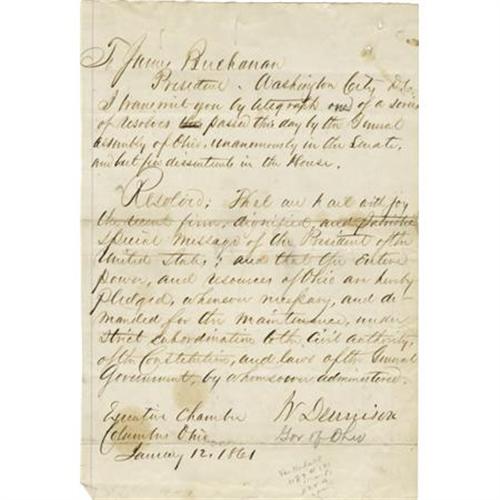 To James Buchanan
President. Washington City D.C.
I transmit you by telegraph one of a series
of resolves passed this day by the General
Assembly of Ohio, unanimously in the Senate,
and but five dissentients in the House.
Resolved; That we hail with joy
the recent firm, dignified, and patriotic
special message of the President of the
United States; and that the entire
power, and resources of Ohio are hereby
pledged, whenever necessary, and de-
manded for the maintenance, under
strict subordination to the Civil authority,
of the Constitution, and laws of the General
Government, by whomsoever administered.
Executive Chamber W Dennison
Columbus Ohio Gov of Ohio
January 12, 1861